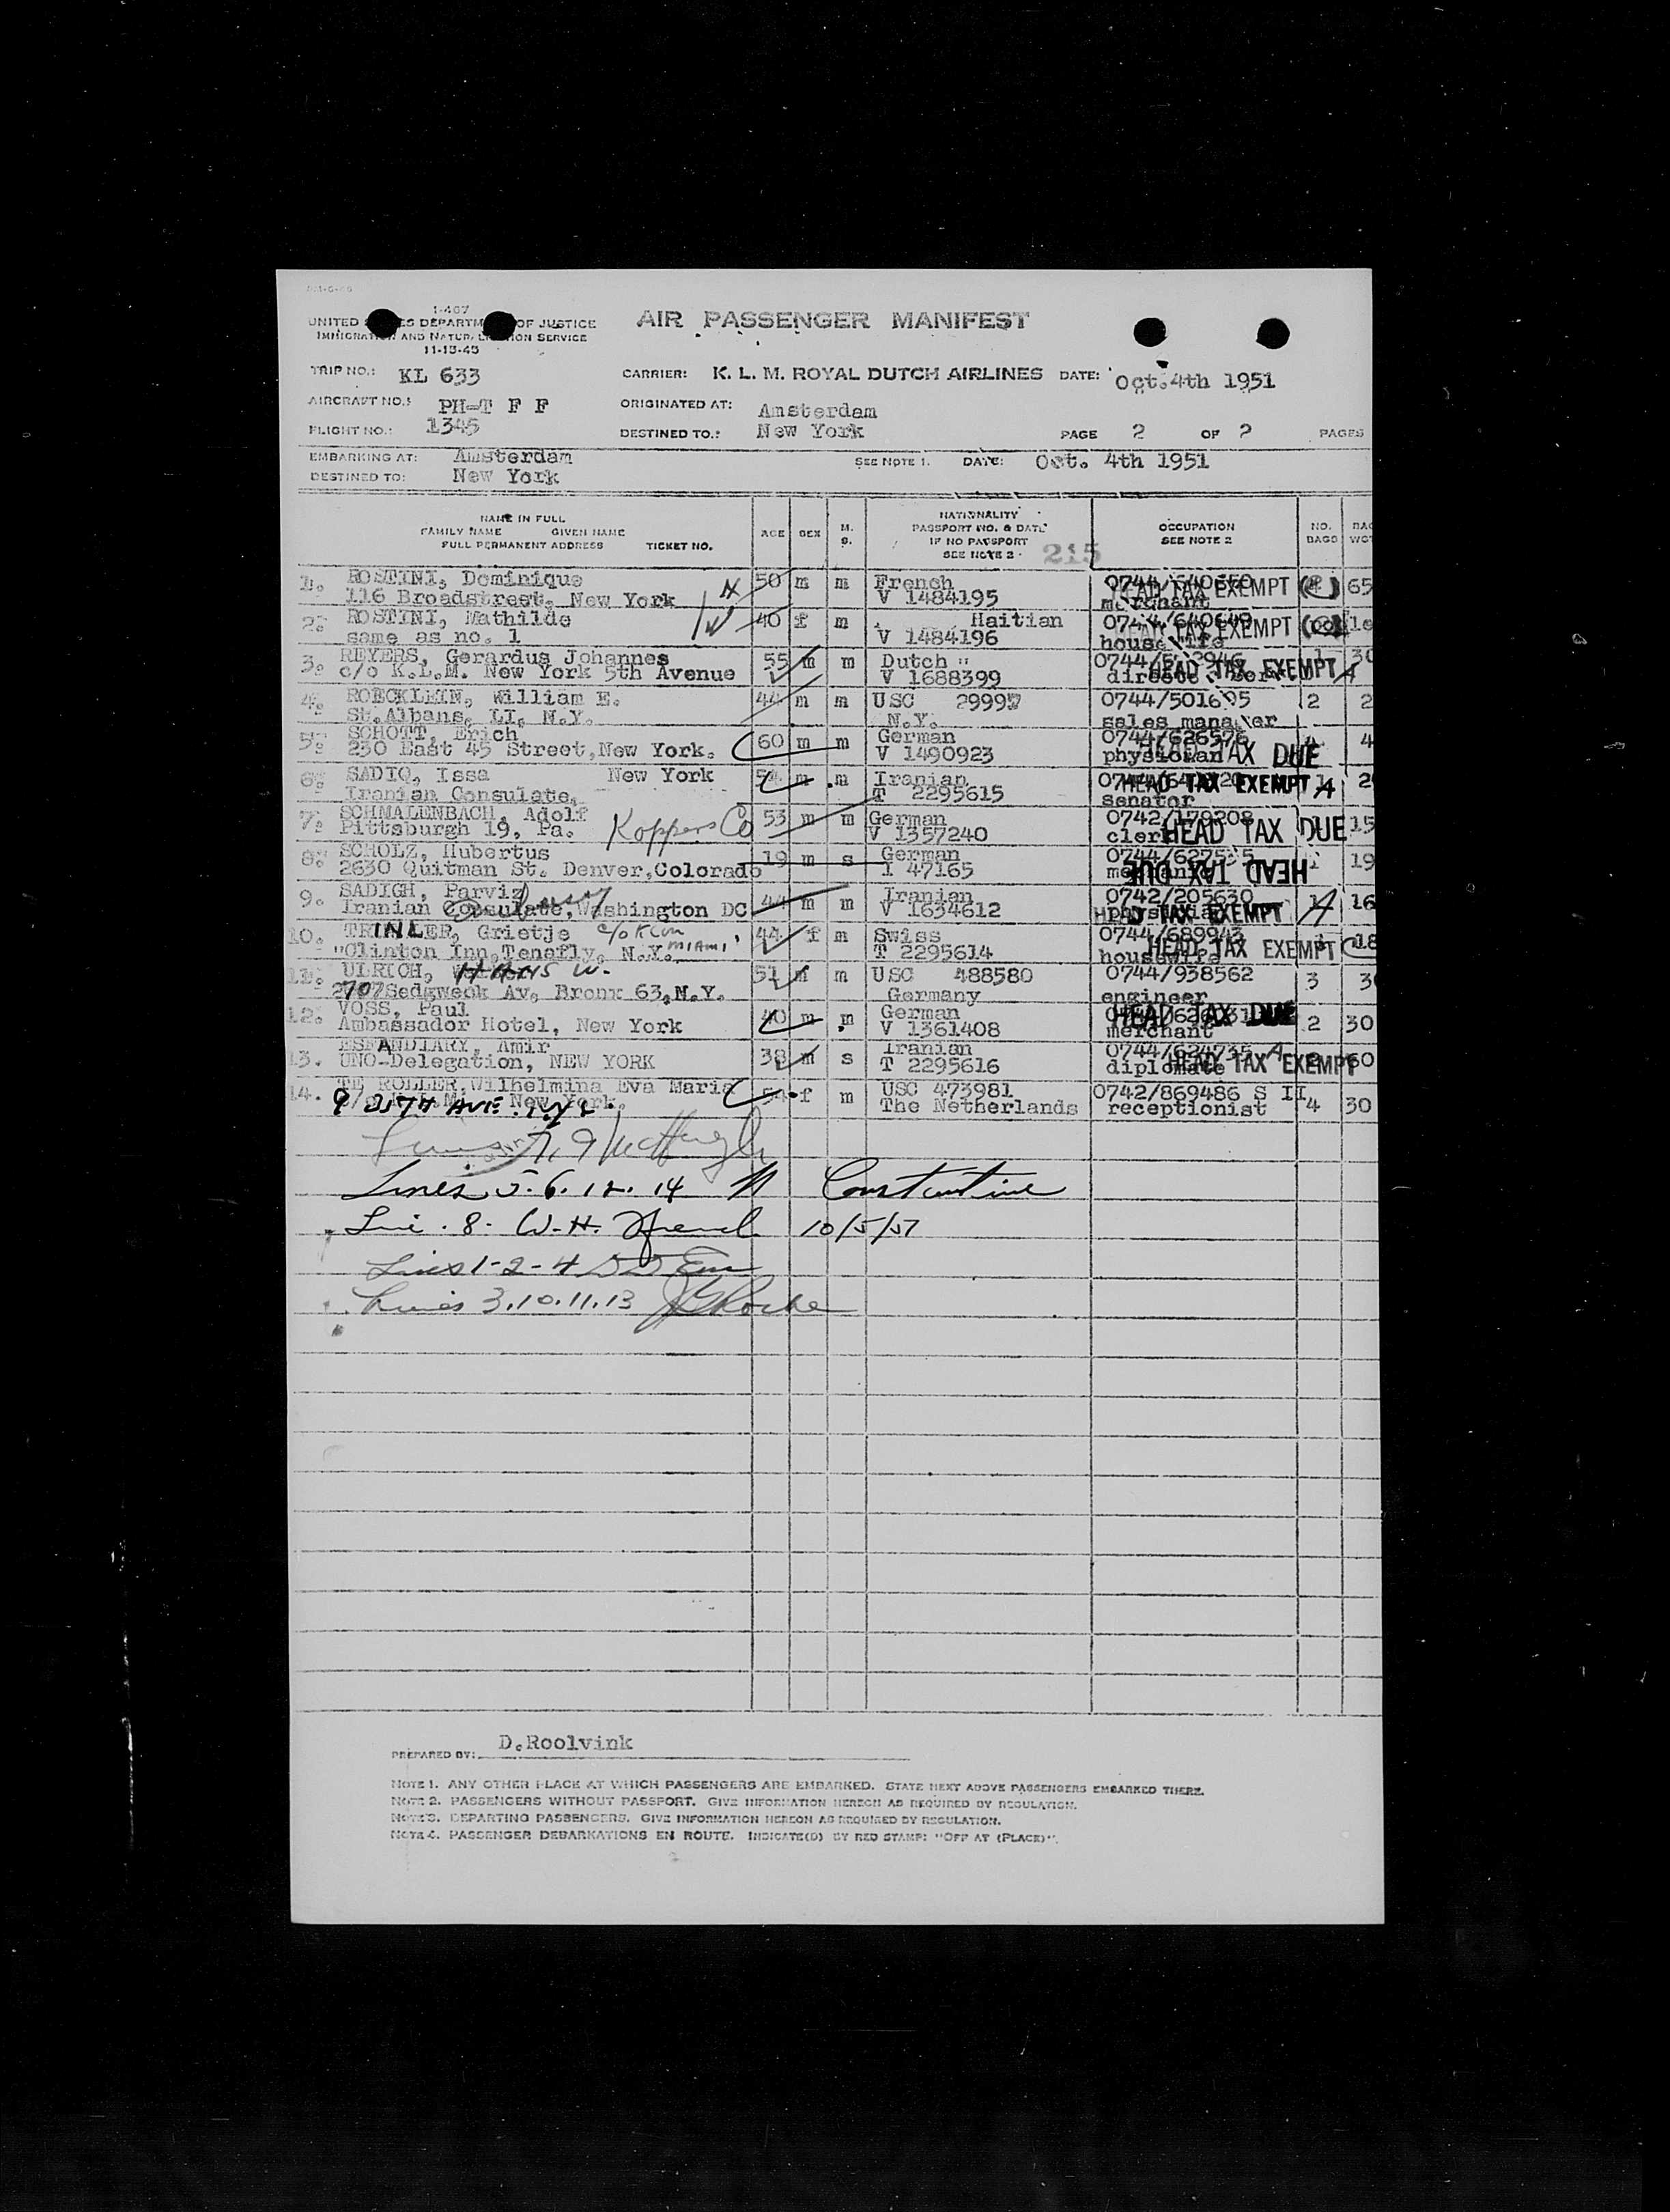 I-407
UNITED STATES DEPARTMENT OF JUSTICE
IMMIGRATION AND NATURALIZATION SERVICE
11-15-45
AIR PASSENGER MANIFEST
TRIP NO.: KL 633 CARRIER: K. L. M. ROYAL DUTCH AIRLINES DATE: Oct.4th 1951
AIRCRAFT NO.: PH-T F F ORIGINATED AT: Amsterdam
FLIGHT NO.: 1345 DESTINED TO.: New York PAGE 2 OF 2 PAGES
EMBARKING AT: Amsterdam SEE NOTE 1. DATE: Oct. 4th 1951
DESTINED TO: New York
NAME IN FULL
FAMILY NAME GIVEN NAME
FULL PERMANENT ADDRESS TICKET NO.
AGE SEX M. S.
NATIONALITY
PASSPORT NO. & DATE
IF NO PASSPORT
SEE NOTE 2
215
OCCUPATION
SEE NOTE 2
NO. BAGS
BAG WGT
1. ROSTINI, Dominique 50 m m French HEAD TAX EXEMPT 65
116 Broadstreet, New York V 1484195 merchant
2. ROSTINI, Mathilde 40 f m Haitian 0744/640649 HEAD TAX EXEMPT
same as no. 1 V 1484196 housewife
3. REYERS, Gerardus Johannes 55 m m Dutch HEAD TAX EXEMPT
c/o K.L.M. New York 5th Avenue V 1688399
4. ROECKLEIN, William E. 44 m m USC 29997 0744/501695 2 2
St.Albans, LI, N.Y. N.Y. sales manager
5. SCHOTT, Erich 60 m m German 0744/626576 4
230 East 45 Street,New York. V 1490923 physician HEAD TAX DUE
6. SADIQ, Issa New York m m Iranian HEAD TAX EXEMPT A 2
Iranian Consulate, T 2295615 senator
7. SCHMALENBACH, Adolf Koppers Co 53 m m German 0742/179208 15
Pittsburgh 19, Pa. V 1357240 clerk HEAD TAX DUE
8. SCHOLZ, Hubertus 19 m s German 19
2630 Quitman St. Denver,Colorado I 47165 mechanic HEAD TAX DUE
9. SADIGH, Parviz 44 m m Iranian 0742/205630 A 16
Iranian Consulate,Washington DC V 1634612 physician HEAD TAX EXEMPT
10. TRINLER, Grietje c/o KLM MIAMI 44 f m Swiss 0744/689943 18
"Clinton Inn,Tenafly, N.Y. T 2295614 housewife HEAD TAX EXEMPT
11. ULRICH, HANS W. 51 m m USC 488580 0744/938562 3 3
2707 Sedgweok Av, Bronx 63,N.Y. Germany engineer
12. VOSS, Paul 40 m m German HEAD TAX DUE 2 30
Ambassador Hotel, New York V 1361408 merchant
13. ESFANDIARY, Amir 38 m s Iranian 0744/624735 A
UNO-Delegation, NEW YORK T 2295616 diplomate HEAD TAX EXEMPT
14. TE ROLLER,Wilhelmina Eva Maria 54 f m USC 473981 0742/869486 S II
New York. The Netherlands receptionist 4 30
Lines 5. 6. 12. 14 N Constantine
Line 8. W.H. French 10/5/51
Lines 1-2-4
Lines 3.10.11.13 JG Roche
PREPARED BY: D.Roolvink
NOTE 1. ANY OTHER PLACE AT WHICH PASSENGERS ARE EMBARKED. STATE NEXT ABOVE PASSENGERS EMBARKED THERE.
NOTE 2. PASSENGERS WITHOUT PASSPORT. GIVE INFORMATION HEREON AS REQUIRED BY REGULATION.
NOTE 3. DEPARTING PASSENGERS. GIVE INFORMATION HEREON AS REQUIRED BY REGULATION.
NOTE 4. PASSENGER DEBARKATIONS EN ROUTE. INDICATE(D) BY RED STAMP: "OFF AT (PLACE)".